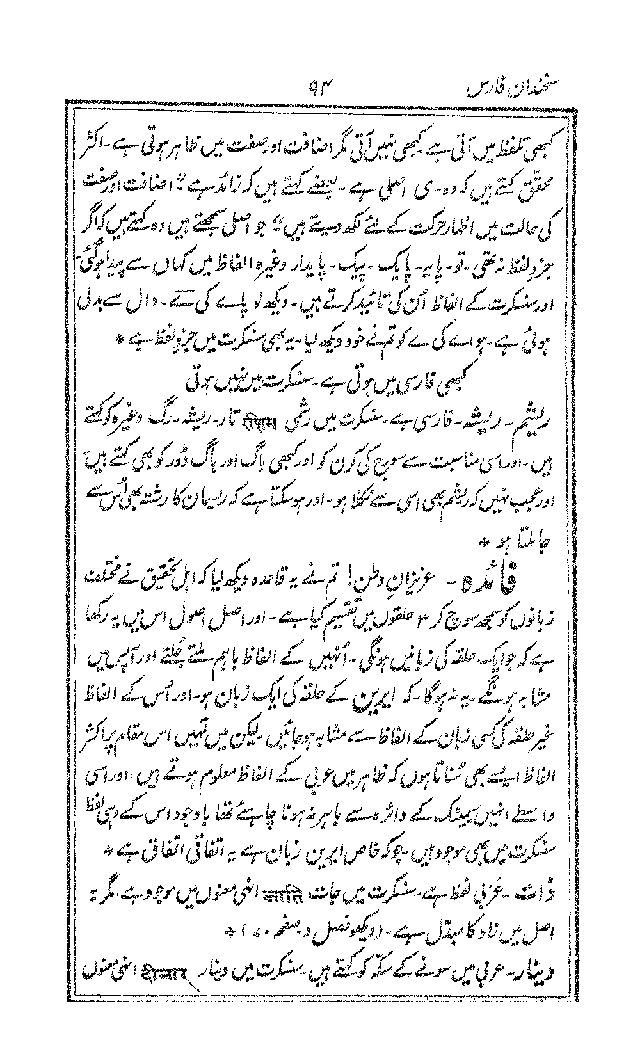 سخندان فارس ۹۳
کبھی تلفظ میں آتی ہے کبھی نہیں آتی مگر اضافت اور صفت میں ظاہر ہوتی ہے۔ اکثر
محقق کہتے ہیں کہ وہ۔ ی اصلی ہے۔ بعضے کہتے ہیں کہ زائد ہے ؛ اضافت اور صفت
کی حالت میں اظہار حرکت کے لئے لکھ دیتے ہیں ؛ جو اصلی سمجھتے ہیں وہ کہتے ہیں کہ اگر
جزو لفظ نہ تھی۔ تو۔ پایہ۔ پایک۔ پیک۔ پایدار وغیرہ الفاظ میں کہاں سے پیدا ہوگئی۔
اور سنسکرت کے الفاظ اُن کی تائید کرتے ہیں۔ دیکھو لو پاے کی ے۔ دال سے بدلی
ہوئی ہے۔ بواے کی ے کو تم نے خود دیکھ لیا۔ یہ بھی سنسکرت میں جزو لفظ ہے *
کبھی فارسی میں ہوتی ہے۔ سنسکرت میں نہیں ہوتی
ریشم۔ ریشہ۔ فارسی ہے۔ سنسکرت میں رشمی रश्म تار۔ ریشہ۔ رگ وغیرہ کو کہتے
ہیں۔ اور اسی مناسبت سے سورج کی کرن کو اور کبھی باگ اور باگ ڈور کو بھی کہتے ہیں۔
اور عجب نہیں کہ ریشم بھی اسی سے نکلا ہو۔ اور ہو سکتا ہے کہ ریسمان کا رشتہ بھی اُس سے
جا ملتا ہو *
فائدہ ۔ عزیزان وطن! تم نے یہ قاعدہ دیکھ لیا کہ اہل تحقیق نے مختلف
زبانوں کو سمجھ سوچ کر ۳ حلقوں میں تقسیم کیا ہے۔ اور اصل اصول اس میں یہ رکھا
ہے کہ جو ایک حلقہ کی زبانیں ہونگی۔ اُنہیں کے الفاظ باہم ملتے جلتے اور آپس میں
مشابہ ہونگے۔ یہ نہ ہوگا۔ کہ ایرین کے حلقہ کی ایک زبان ہو۔ اور اُس کے الفاظ
غیر حلقہ کی کسی زبان کے الفاظ سے مشابہ ہو جائیں۔ لیکن میں تمہیں اس مقام پر اکثر
الفاظ ایسے بھی سُناتا ہوں کہ ظاہر میں عربی کے الفاظ معلوم ہوتے ہیں۔ اور اسی
واسطے انہیں سیمٹک کے دائرہ سے باہر نہ ہونا چاہئے تھا باوجود اس کے وہی لفظ
سنسکرت میں بھی موجود ہیں۔ جو کہ خاص ایرین زبان ہے یہ اتفاقی اتفاقی ہے *
ذات۔ عربی لفظ ہے۔ سنسکرت میں جات जाति انہی معنوں میں موجود ہے۔ مگر :
اصل میں زاد کا مبدل ہے۔ (دیکھو فصل د صفحہ ۷۰) *
دینار۔ عربی میں سونے کے سکہ کو کہتے ہیں۔ سنسکرت میں دینار दीनार انہی معنوں